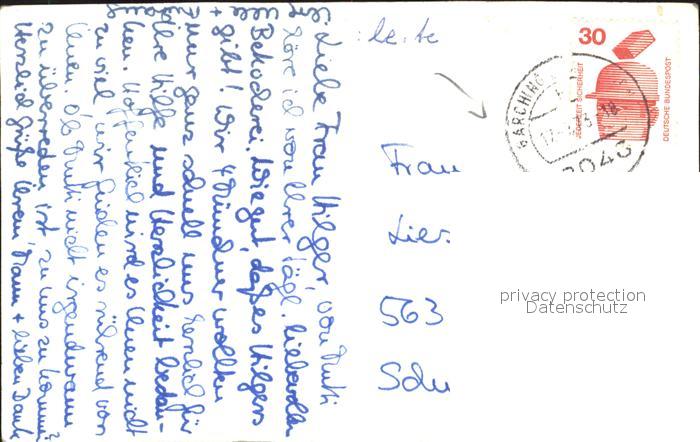 Liebe Frau Hilger, von Mutti
höre ich von Ihrer tägl. liebevollen
Bekocherei. Wie gut, daß es Hilgers
gibt! Wir 4 Münchner wollten
nur ganz schnell uns herzlich für
Ihre Hilfe und Herzlichkeit bedan-
ken. Hoffentlich wird es Ihnen nicht
zu viel, wir finden es rührend von
Ihnen. Ob Mutti nicht irgendwann
zu überreden ist, zu uns zu kommen?
Herzliche Grüße Ihrem Mann + lieben Dank
Frau
563
30
JEDERZEIT SICHERHEIT
DEUTSCHE BUNDESPOST
GARCHING
privacy protection
Datenschutz